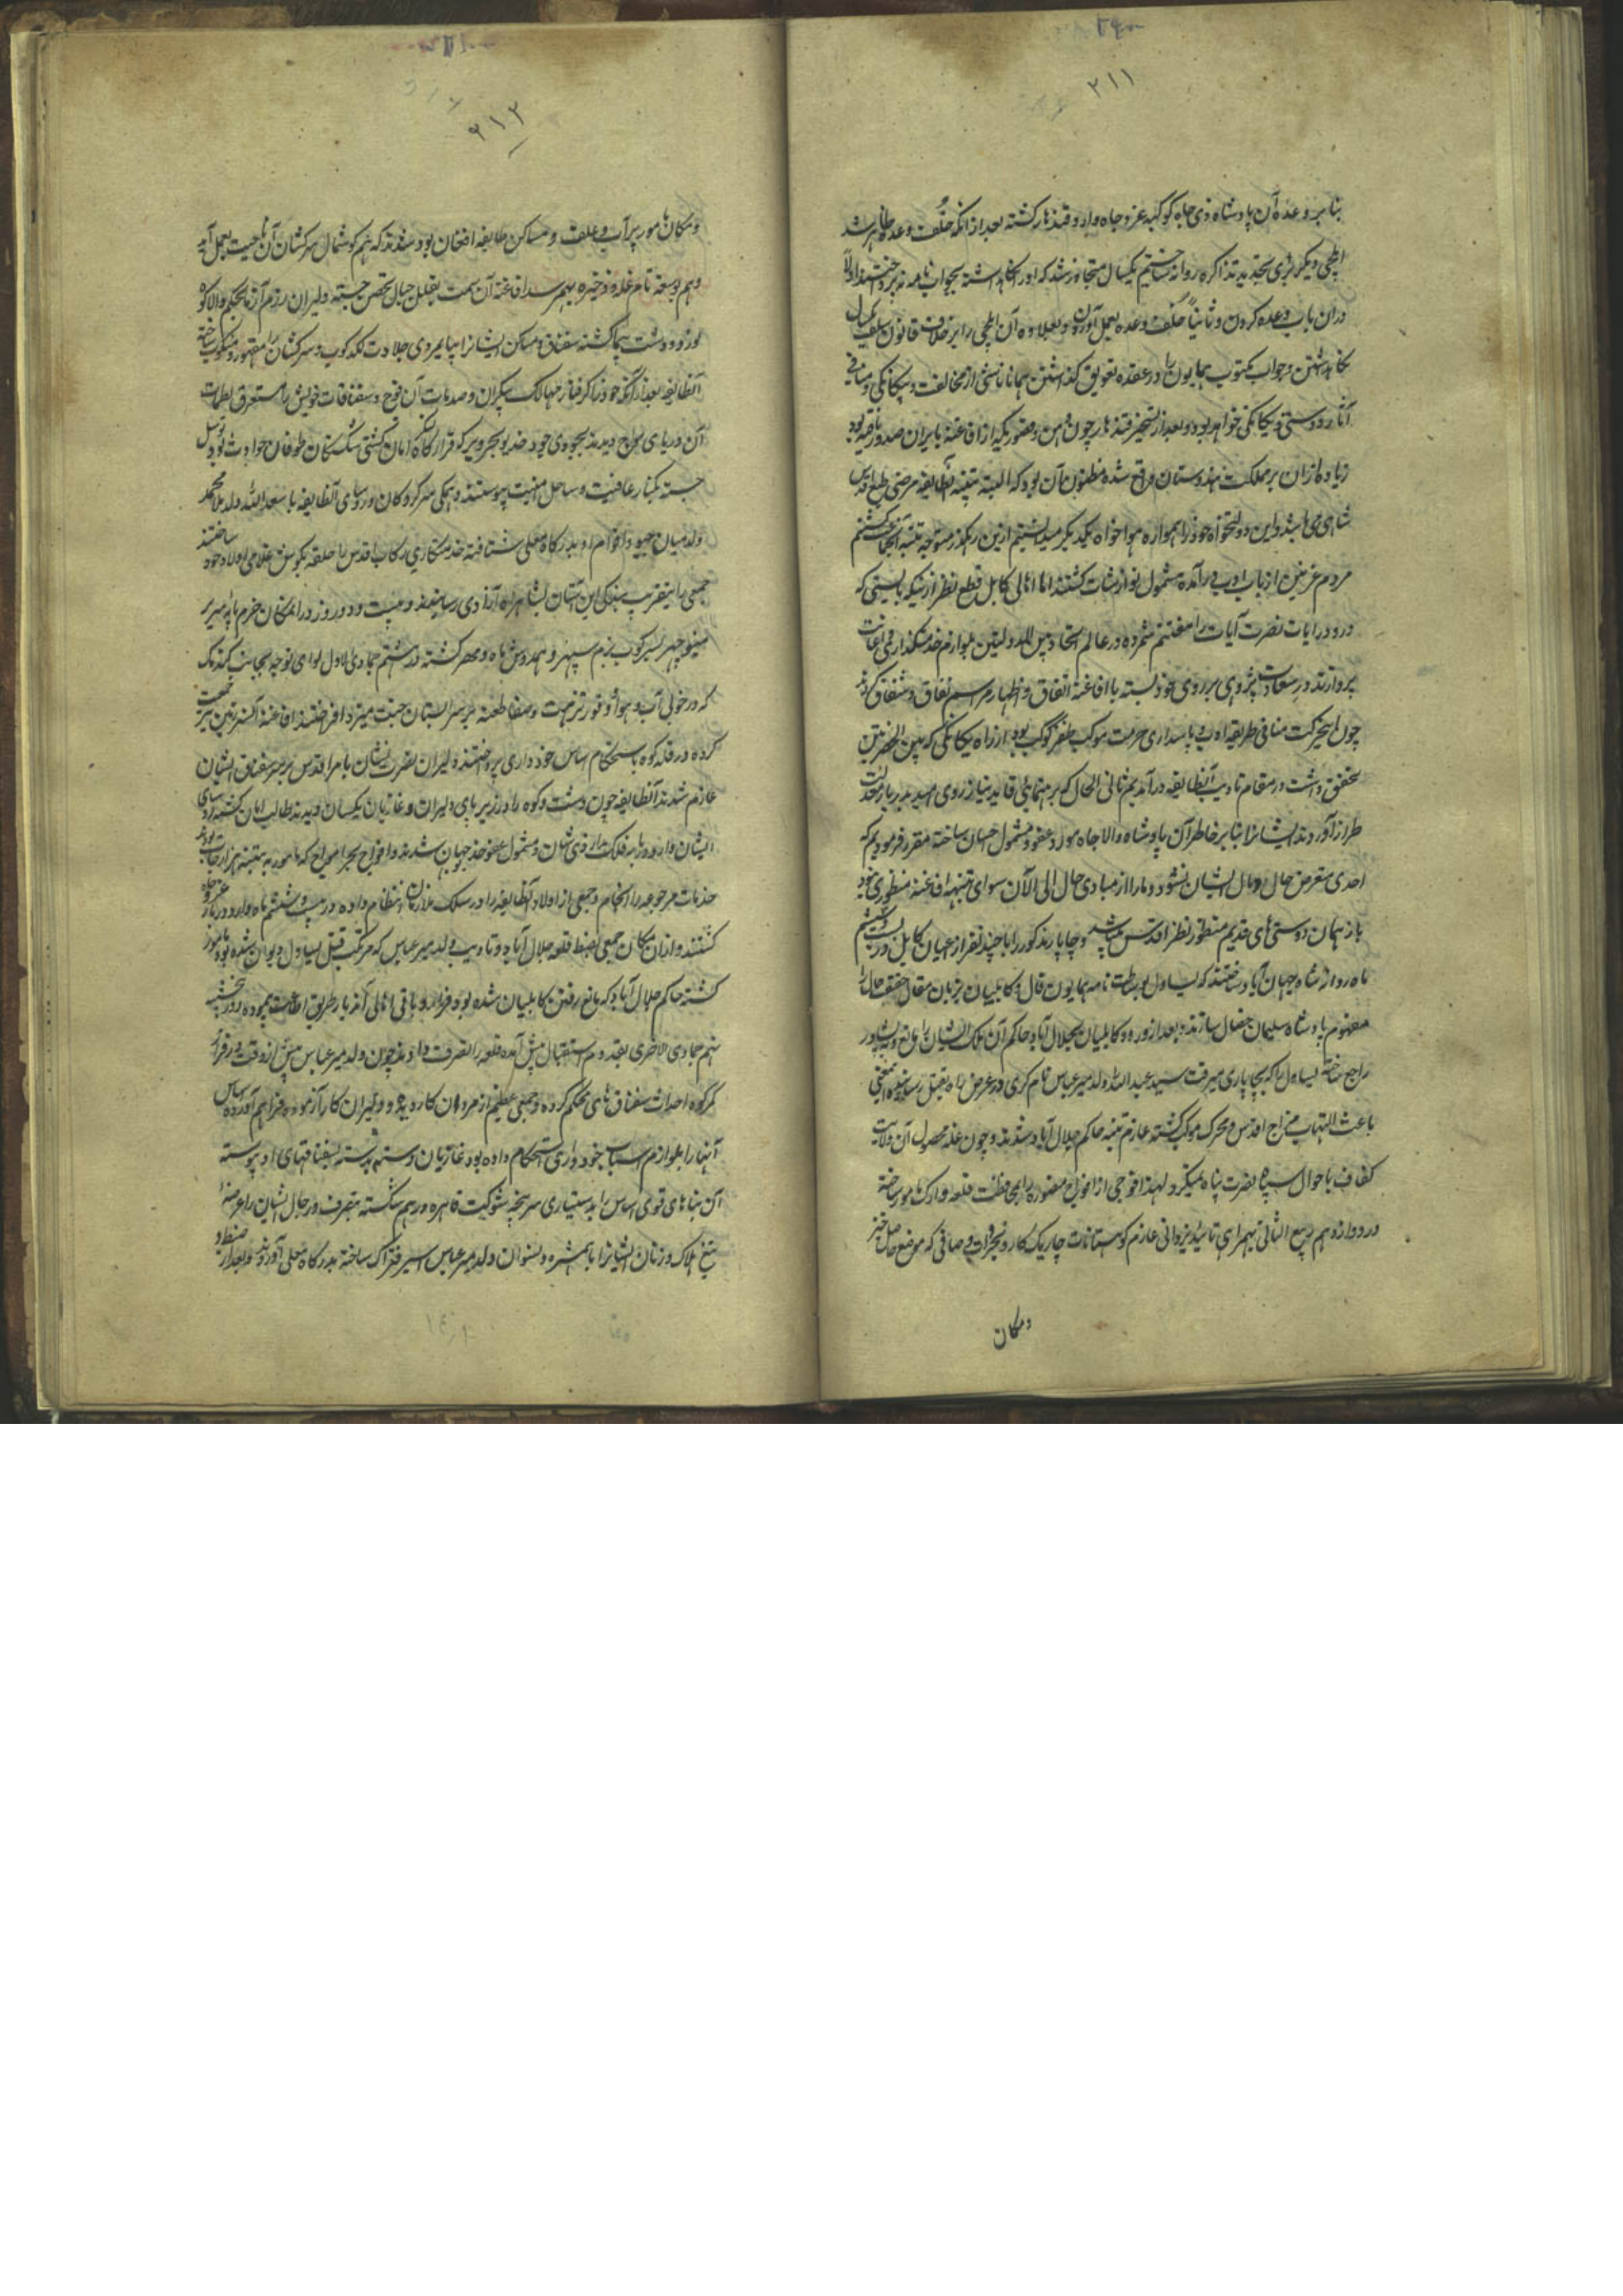 ۲۱۱
بنا بر وعده آن پادشاه ذی جاه کوکبه عز و جاه وارد قندهار گشته بعد از آنکه خلف وعده ظاهر شد
ایلچی دیگر برای تجدید تذاکره روانه ساختیم یکسال متجاوز شد که او را نگاهداشته بجواب نامه نپرداختند اولاً
در آن باب وعده کردن و ثانیاً خلف وعده بعمل آوردن و بعلاوه آن ایلچی را بر خلاف قانون سلف یکسال
نگاهداشتن و جواب مکتوب همایون را در عقده تعویق گذاشتن همانا ناشی از مخالفت و بیگانگی و منافی
آثار دوستی و یگانگی خواهد بود و بعد از تسخیر قندهار چون وهن و ضرریکه از افاغنه بایران صدور یافته بود
زیاده از آن بر مملکت هندوستان واقع شده مظنون آن بود که البته تنبیه آنطایفه مرضی طبع اقدس
شاهی می باشد و این دولتخواه خود را همواره هواخواه یکدیگر میدانستیم ازین رهگذر متوجه تنبیه آنجماعت گشتیم
مردم غزنین از باب ادب در آمده مشمول نوازشات گشتند اما اهالی کابل قطع نظر از اینکه بایستی که
ورود رایات نصرت آیات را مغتنم شمرده در عالم اتحاد بین الدولتین بلوازم خدمتگذاری و اعانت
پردازند در سعادت پژوهی بر روی خود بسته با افاغنه اتفاق و اظهار مراسم نفاق و شقاق کردند
چون اینحرکت منافی طریقه ادب و پاسداری حرمت موکب ظفر کوکب بود از راه یگانگی که بین الحضرتین
تحقق داشت در مقام تادیب آنطایفه درآمدیم ثانی الحال که برهنمائی قاید نیاز روی امید بدربار معدلت
طراز آوردند ایشانرا بنا بر خاطر آن پادشاه والاجاه مورد عفو و مشمول احسان ساخته مقرر فرمودیم که
احدی متعرض حال و مال ایشان نشود و ما را از مبادی حال الی الآن سوای تنبیه افاغنه منظوری نبود
باز همان دوستی های قدیم منظور نظر اقدس میباشد و چاپار مذکور را با چند نفر از اعیان کابل در بیست و ششم
ماه روانه شاه جهان آباد ساختند که یساول بوساطت نامه همایون قال و کابلیان بزبان مقال حقیقت حال را
مفهوم پادشاه سلیمان جفال سازند و بعد از ورود کابلیان بجلال آباد حاکم آن ملک ایشان را مانع و به پشاور
راجع ساخته یساول را که بچاپاری میرفت سید عبدالله ولد میر عباس نام کری در عرض راه بقتل رسانید و اینمعنی
باعث التهاب مزاج اقدس و محرک موکب گشته عازم تنبیه حاکم جلال آباد شدند و چون غله محصول آن ولایت
کفاف باحوال سپاه نصرت پناه نمیکرد لهذا فوجی از افواج منصوره را بمحافظت قلعه و ارک مأمور ساخته
در دوازدهم ربیع الثانی بهمراهی تائید یزدانی عازم کوهستانات چاریک کار و نجراب و صافی که موضع حاصل خیز
و مکان
۲۱۲
و مکان مامور پر آب و علف و مساکن طایفه افغان بود شدند که هم گوشمال سرکشان آن ناحیت بعمل آید
و هم بوسعت تام غله و ذخیره بهمرسد افاغنه آن سمت بقلل جبال تحصن جسته دلیران رزم آزما بحکم والا کوه
نورد و دشت پیما گشته سقناق و مساکن ایشانرا بپایمردی جلادت لگدکوب و سرکشان را مقهور و منکوب ساخته
آنطایفه بعد از آنکه خود را گرفتار مهالک بیکران و صدمات آن فوج و سقناقات خویش را مستغرق لطمات
آن دریای مواج دیدند بجودی جود خدیو بحر و بر که قرارگاه لنگر امان کشتی شکستگان طوفان حوادث بود توسل
جسته بکنار عافیت و ساحل امنیت پیوستند و همگی سرکردگان و روسای آنطایفه با سعدالله ولد ملا محمد
ولد میان جیو و اقوام او بدرگاه معلی شتافته خدمتکاری رکاب اقدس را حلقه بگوش غلامی اولاد خود ساختند
جمعی را بتقریب بندگی این آستان بشاهراه آزادی رسانیدند و بیست و دو روز در آنمکان خرم پای سریر
مینو چهر بسیر کوب بزم سپهر و همدوش ماه و مهر گشته در هشتم جمادی الاول لوای توجه بجانب گندمک
که در خوبی آب و هوا و فور نزهت و صفا طعنه بر سرابستان جنت میزد افراختند افاغنه آنسرزمین نیز جمعیت
کرده در قله کوه باستحکام اساس خودداری پرداختند دلیران نصرت نشان بامر اقدس بر سر سقناق ایشان
عازم شدند آنطایفه چون دشت و کوه را در زیر پای دلیران و غازیان یکسان دیدند طالب امان گشته روسای
ایشان وارد دربار فلک مدار ذی شان و مشمول عفو خدیو جهان شدند و افواج بحر امواج که مامور به تنبیه هزارجات بودند
خدمات مرجوعه را انجام و جمعی از اولاد آنطایفه را در سلک ملازمان انتظام داده در بیست و ششم ماه وارد دربار عز و جاه
گشتند و از آن مکان جمعی بضبط قلعه جلال آباد و تادیب ولد میر عباس که مرتکب قتل یساول دیوان شده بود مامور
گشته حاکم جلال آباد که مانع رفتن کابلیان شده بود فرار و باقی اهالی آندیار طریق اطاعت پیموده روز پنجشنبه
نهم جمادی الاخری بقدوم استقبال پیش آمده قلعه را بتصرف دادند چون ولد میر عباس پیش از وقت در فراز
کرکوه احداث سقناق های محکم کرده و جمعی عظیم از مردان کار دیده و دلیران کار آزموده فراهم آورده اساس
آنها را بلوازم اسباب خودداری استحکام داده بود غازیان دسته بدسته بسقناقهای او پیوسته
آن بناهای قوی اساس را بدستیاری سرپنجه شوکت قاهره درهم شکسته متصرف و رجال ایشان را عرضه
تیغ هلاک و زنان ایشانرا با همشیره و نسوان ولد میر عباس اسیر فتراک ساخته بدرگاه معلی آوردند و بعد از ضبط و